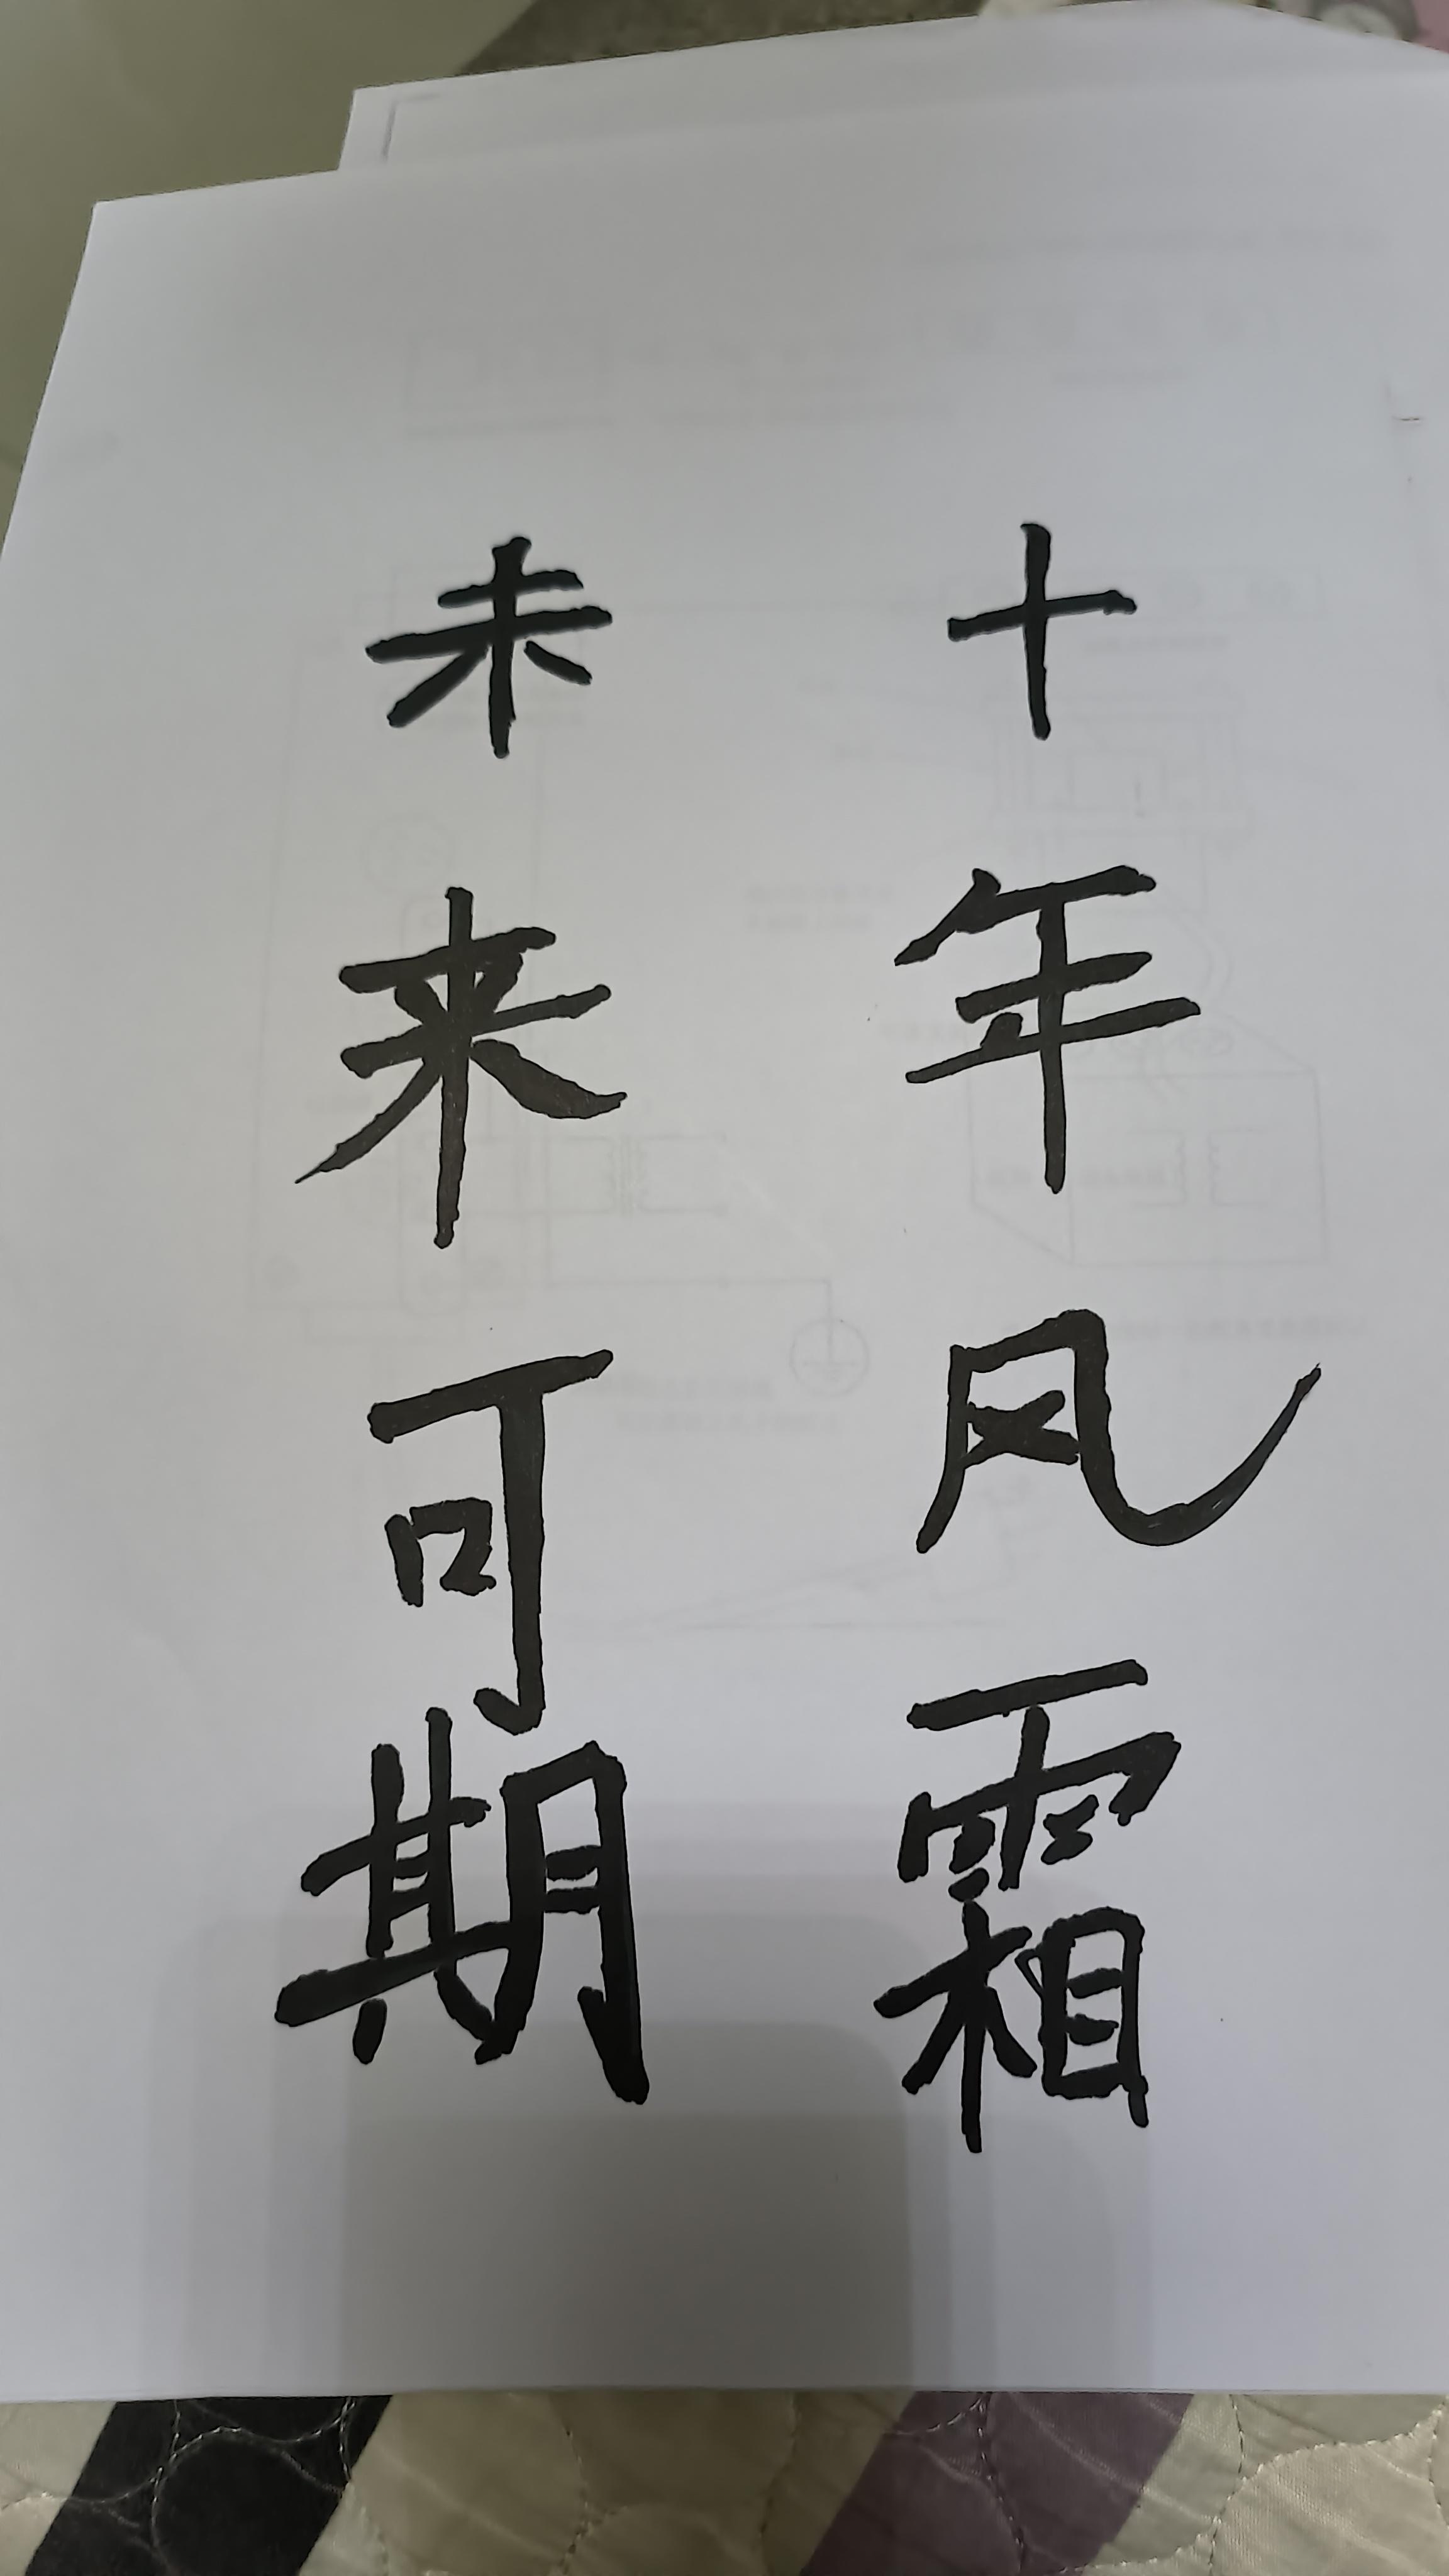 十年风霜
未来可期